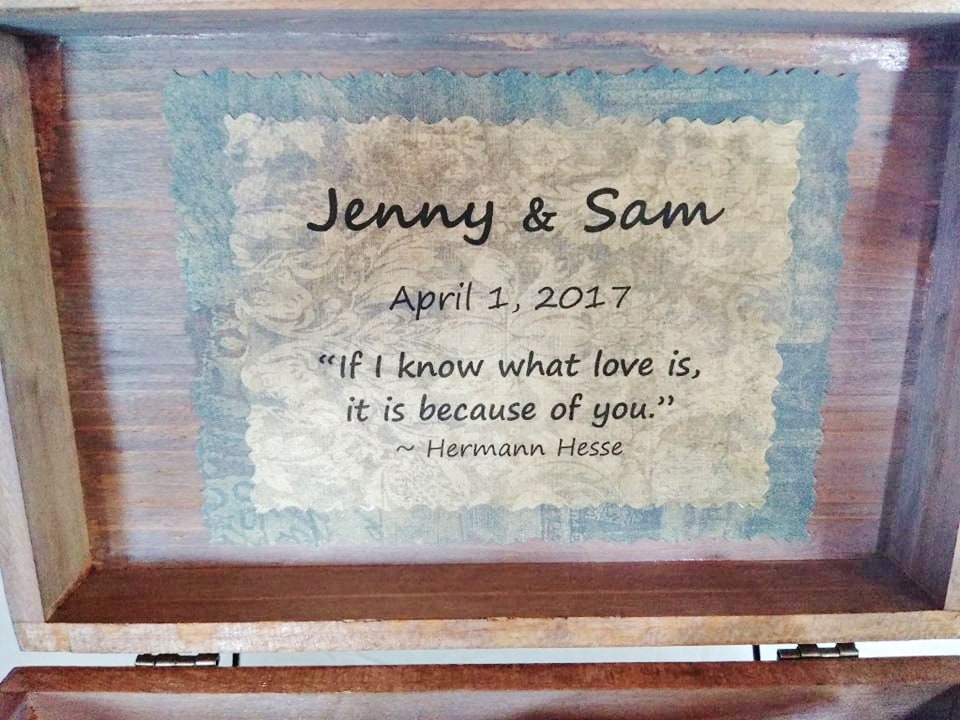 Jenny & Sam
April 1, 2017
“If I know what love is,
it is because of you.”
~ Hermann Hesse